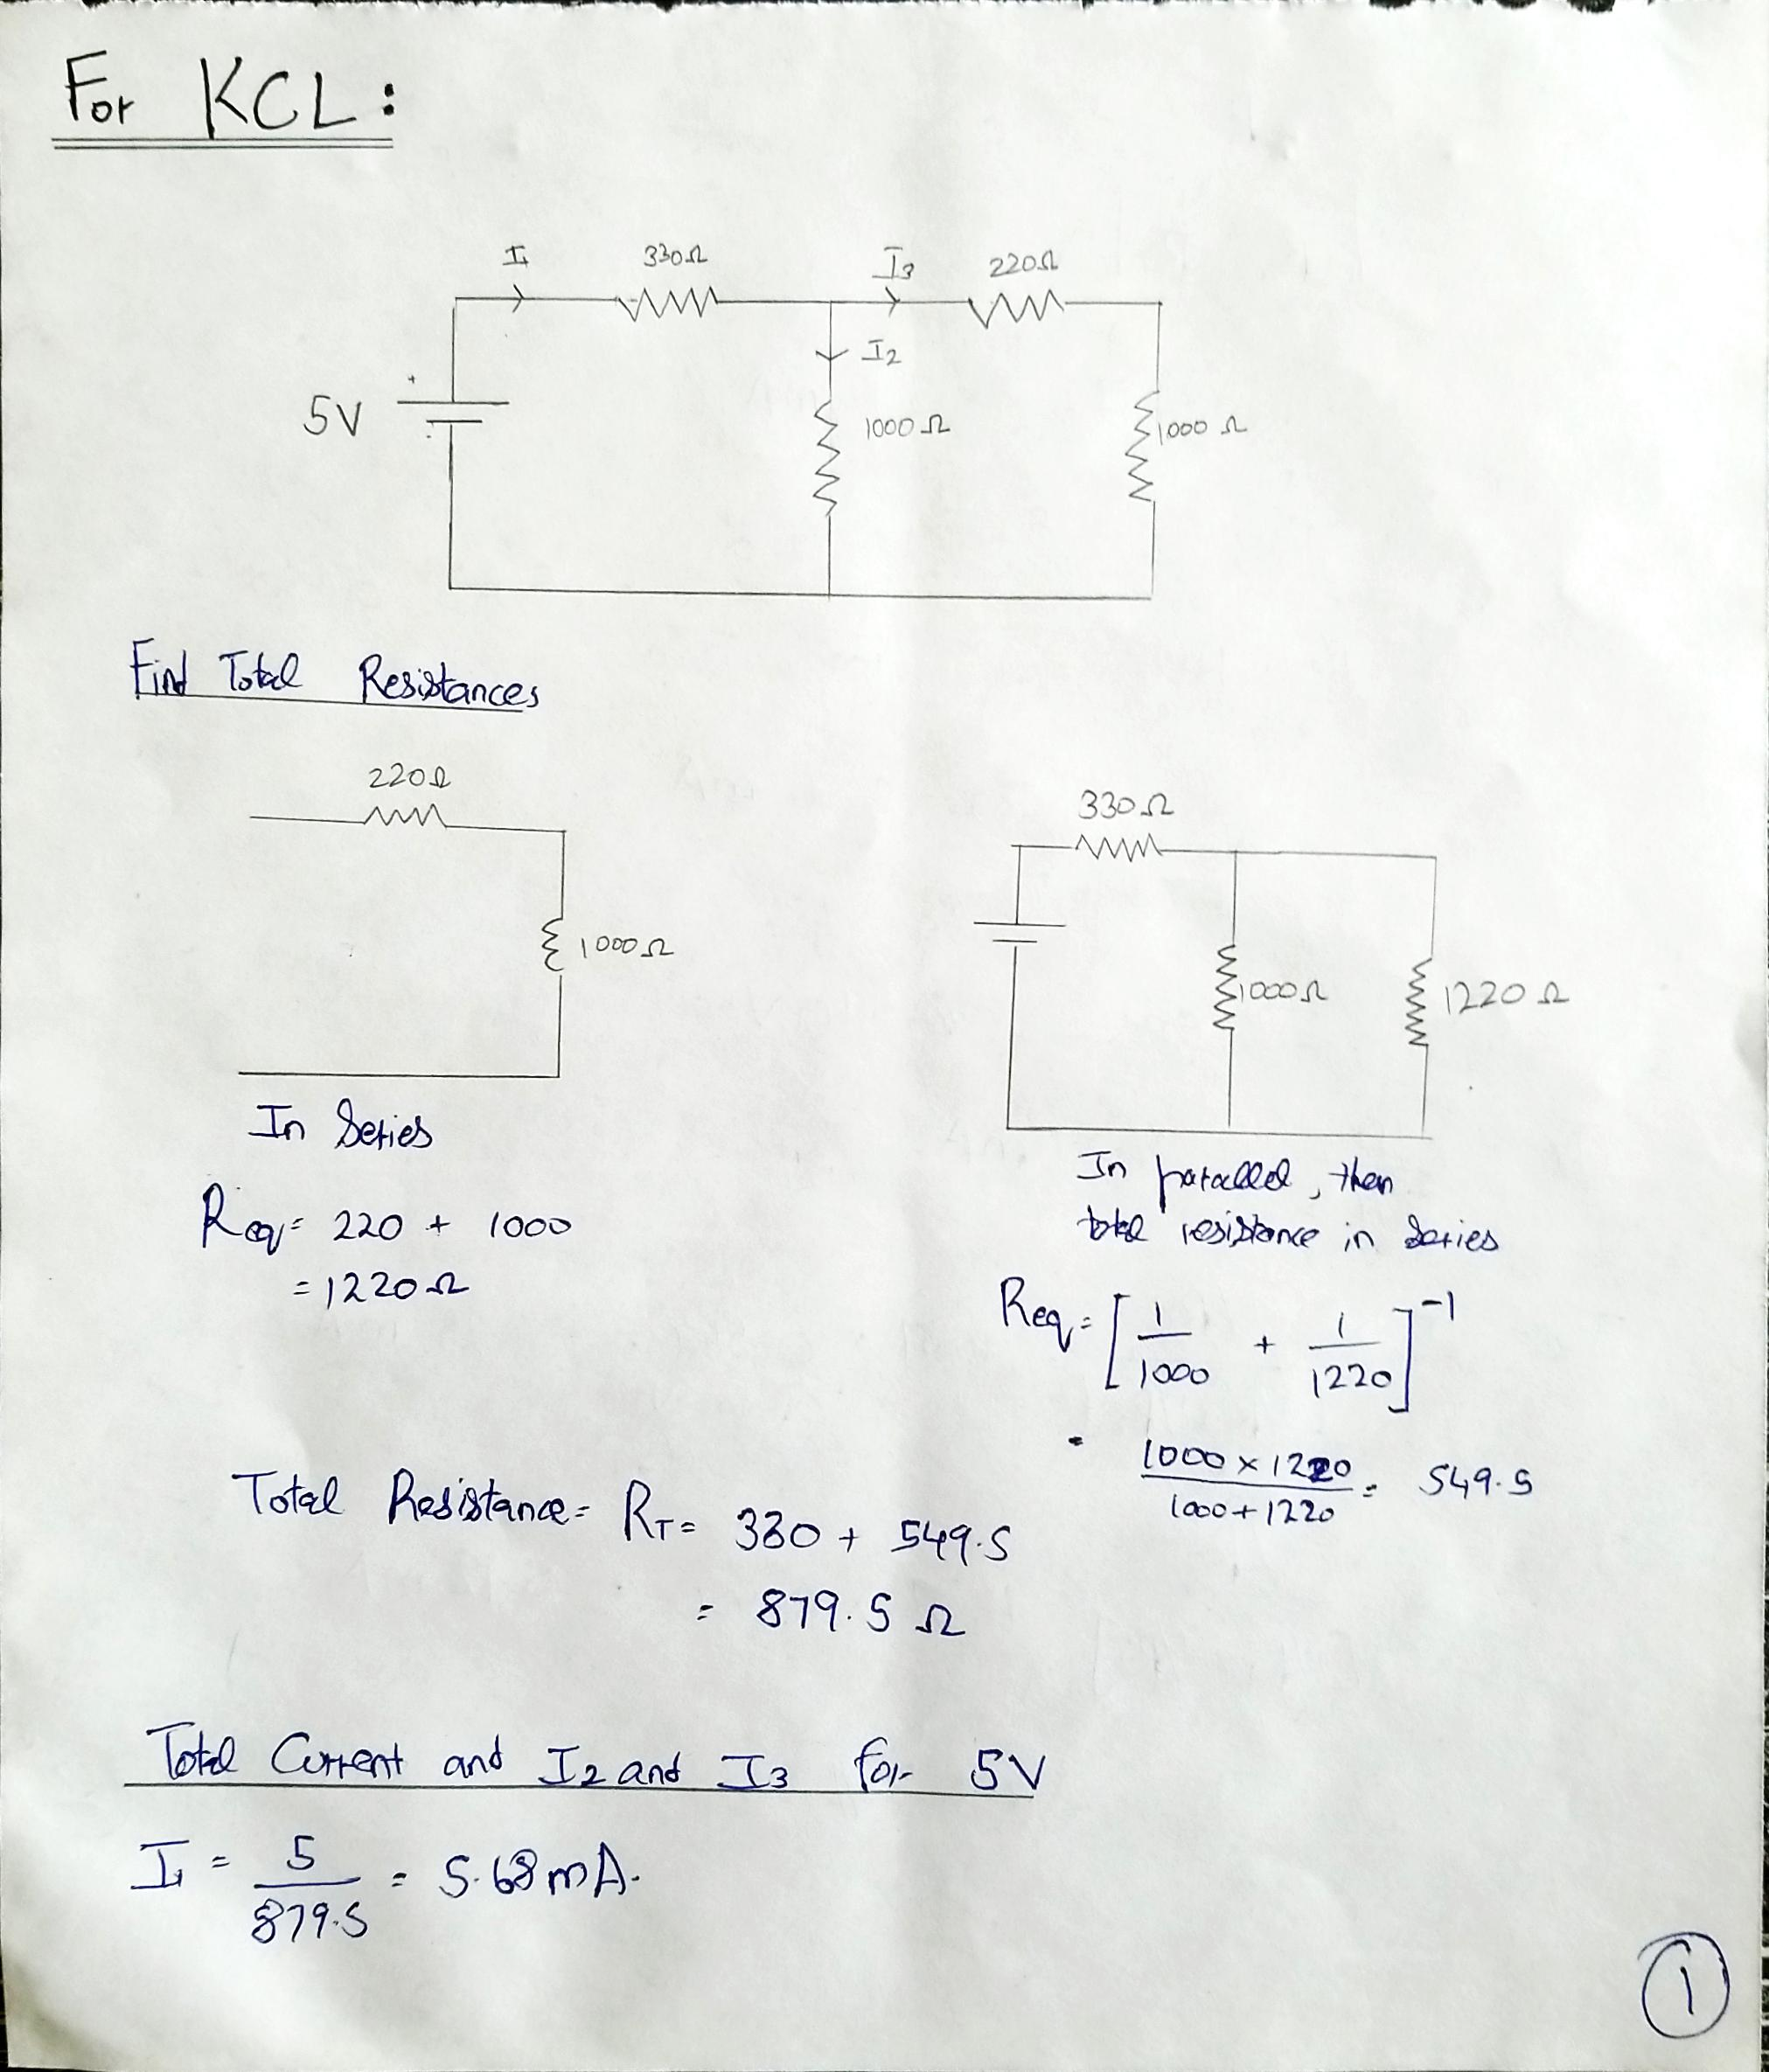 For KCL:
I1 330Ω I3 220Ω
I2
+
5V 1000Ω 1000Ω
-
Find Total Resistances
220Ω
1000Ω
In Series
Req = 220 + 1000
= 1220Ω
330Ω
1000Ω 1220Ω
In parallel, then
total resistance in Series
Req = [1/1000 + 1/1220]^-1
= 1000 x 1220 / 1000 + 1220 = 549.5
Total Resistance = RT = 330 + 549.5
= 879.5 Ω
Total Current and I2 and I3 for 5V
I1 = 5 / 879.5 = 5.68mA.
1